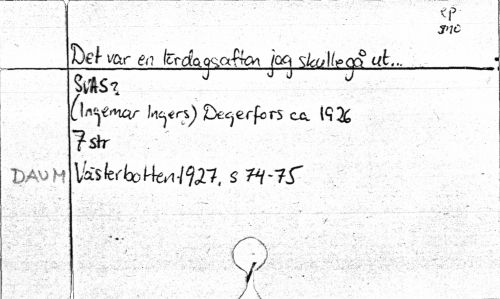 Det var en lördagsafton jag skulle gå ut...
SVAS?
(Ingemar Ingers) Degerfors ca 1926
7 str
DAUM Västerbotten 1927, s 74-75